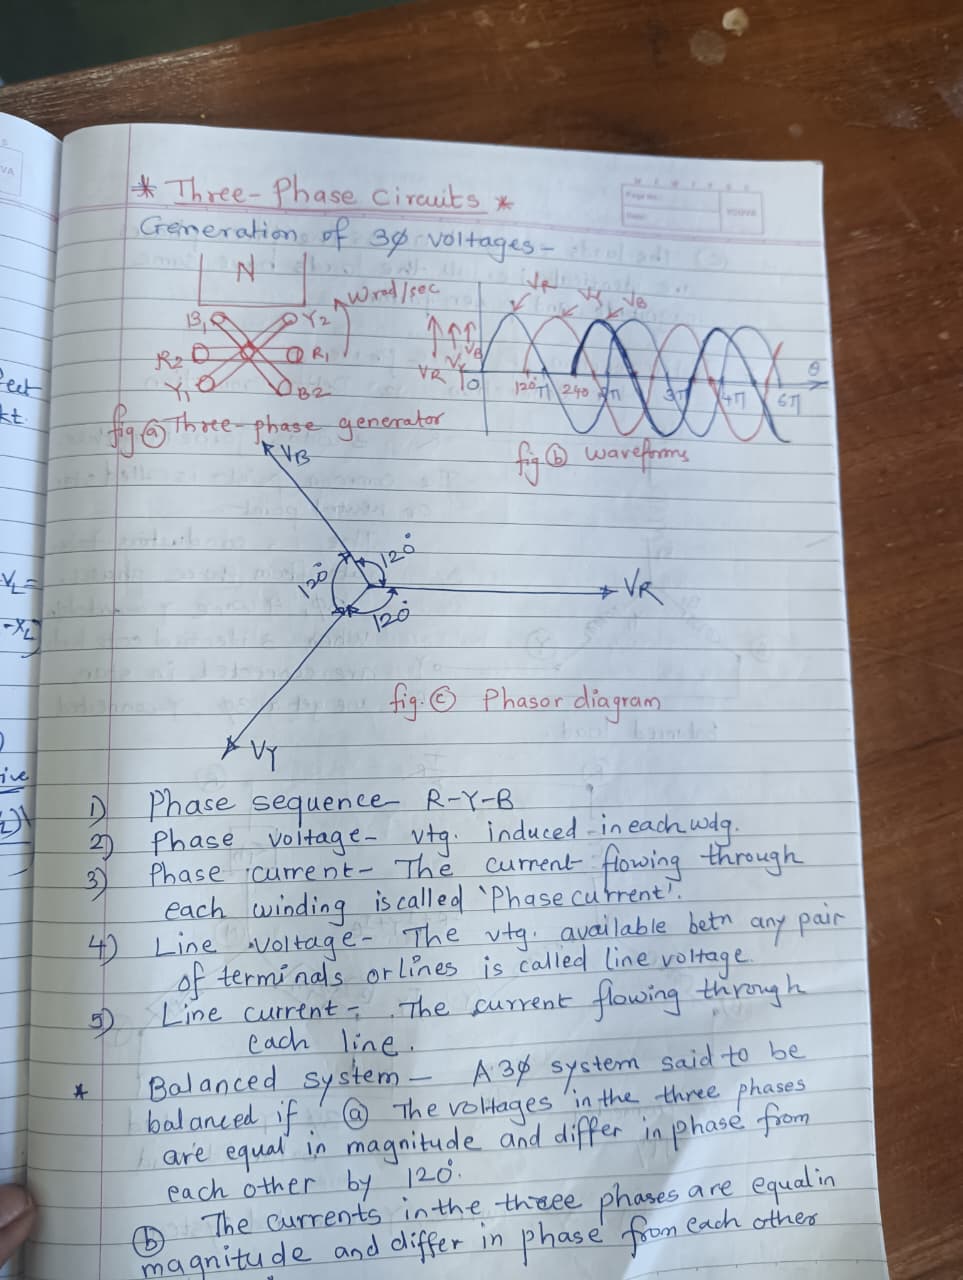 * Three-Phase Circuits *
Generation of 3φ voltages-
N
W rad/sec
B1
Y2
R2
R1
Y1
B2
fig. (a) Three-phase generator
VR
VY
VB
VR
VY
VB
0
120°
π
240
2π
3π
4π
6π
θ
fig (b) waveforms
VB
120°
120°
120°
VR
VY
fig. (c) Phasor diagram
1) Phase sequence- R-Y-B
2) Phase voltage- vtg. induced in each wdg.
3) Phase current- The current flowing through
each winding is called 'Phase current'.
4) Line voltage- The vtg. available betn any pair
of terminals or lines is called line voltage.
5) Line current- The current flowing through
each line.
* Balanced system- A 3φ system said to be
balanced if (a) The voltages in the three phases
are equal in magnitude and differ in phase from
each other by 120°.
(b) The currents in the three phases are equal in
magnitude and differ in phase from each other
VL =
-XL
ive